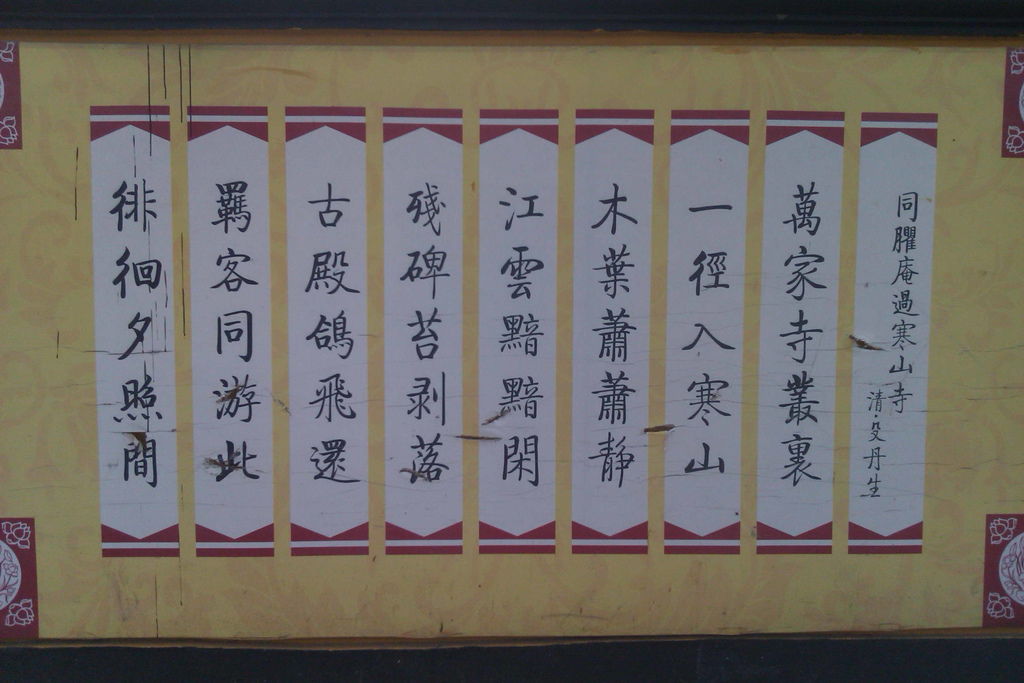 同臞庵過寒山寺
清·殳丹生
萬家寺叢裏
一徑入寒山
木葉蕭蕭靜
江雲黯黯閑
殘碑苔剥落
古殿鴿飛還
羈客同游此
徘徊夕照間